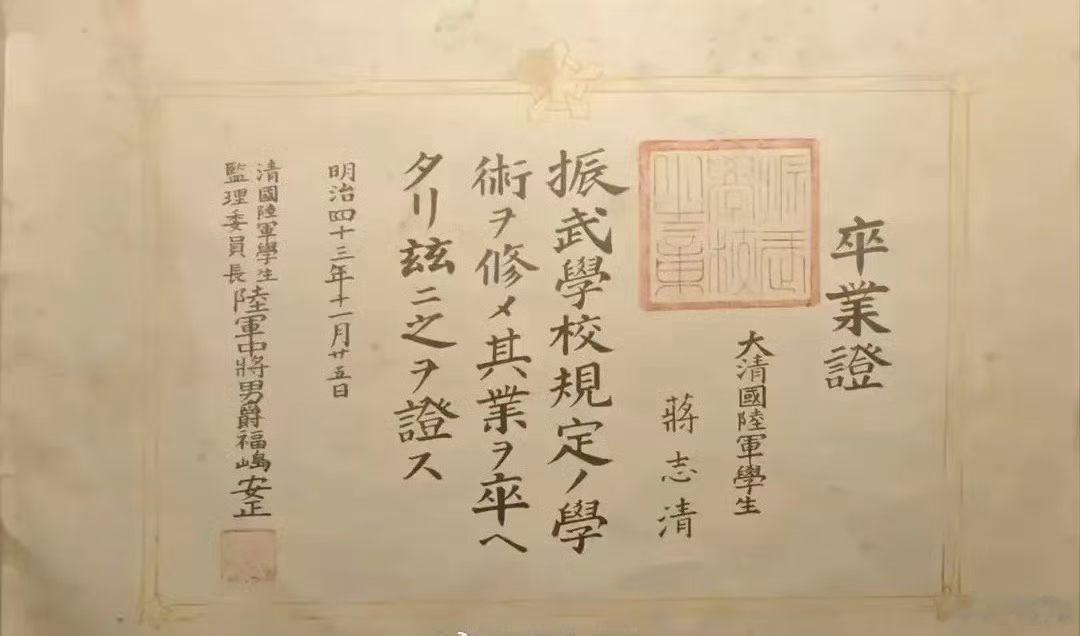 卒業證
大清國陸軍學生
蔣志清
振武學校之章
振武學校規定ノ學
術ヲ修メ其業ヲ卒ヘ
タリ玆ニ之ヲ證ス
明治四十三年十一月廿五日
清國陸軍學生
監理委員長 陸軍中將男爵福嶋安正